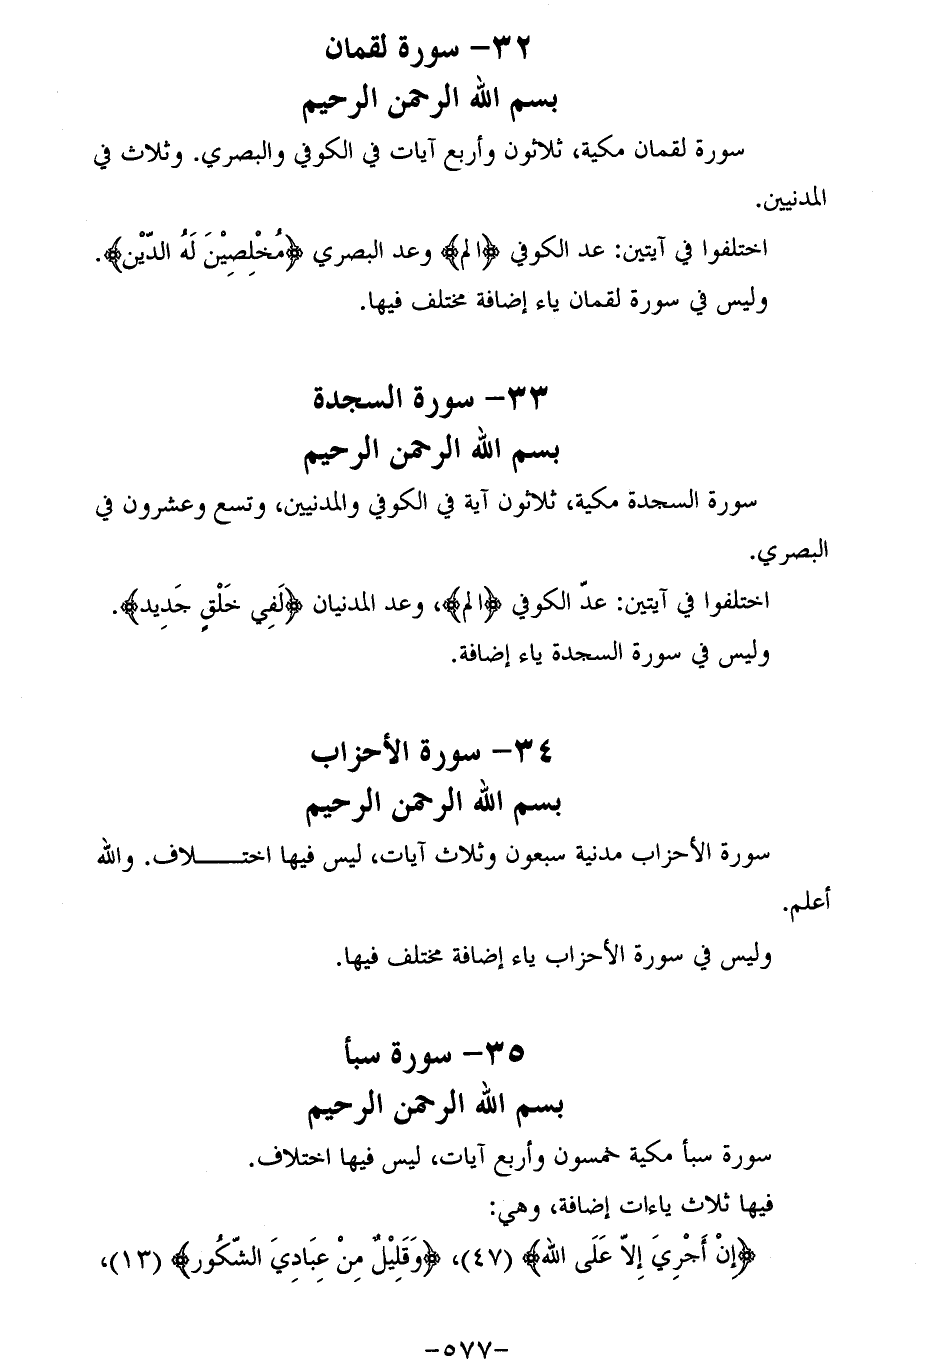 ٣٢- سورة لقمان
بسم الله الرحمن الرحيم
سورة لقمان مكية، ثلاثون وأربع آيات في الكوفي والبصري. وثلاث في
المدنيين.
اختلفوا في آيتين: عد الكوفي ﴿الم﴾ وعد البصري ﴿مُخْلِصِيْنَ لَهُ الدّيْن﴾.
وليس في سورة لقمان ياء إضافة مختلف فيها.
٣٣- سورة السجدة
بسم الله الرحمن الرحيم
سورة السجدة مكية، ثلاثون آية في الكوفي والمدنيين، وتسع وعشرون في
البصري.
اختلفوا في آيتين: عدّ الكوفي ﴿الم﴾، وعد المدنيان ﴿لَفِي خَلْقٍ جَدِيد﴾.
وليس في سورة السجدة ياء إضافة.
٣٤- سورة الأحزاب
بسم الله الرحمن الرحيم
سورة الأحزاب مدنية سبعون وثلاث آيات، ليس فيها اختـــــلاف. والله
أعلم.
وليس في سورة الأحزاب ياء إضافة مختلف فيها.
٣٥- سورة سبأ
بسم الله الرحمن الرحيم
سورة سبأ مكية خمسون وأربع آيات، ليس فيها اختلاف.
فيها ثلاث ياءات إضافة، وهي:
﴿إِنْ أَجْرِيَ إِلاّ عَلَى الله﴾ (٤٧)، ﴿وَقَلِيْلٌ مِنْ عِبَادِيَ الشّكُور﴾ (١٣)،
-٥٧٧-